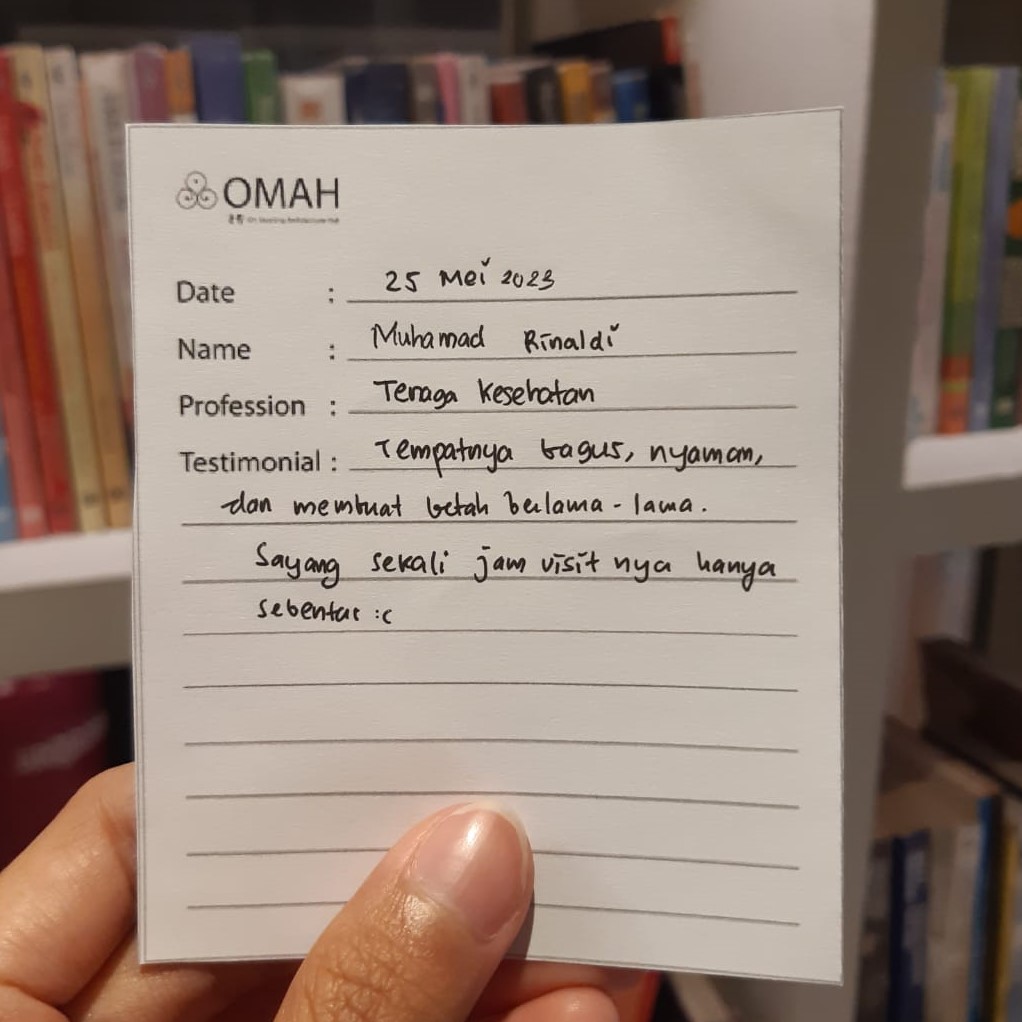 OMAH
Date : 25 Mei 2023
Name : Muhamad Rinaldi
Profession : Tenaga Kesehatan
Testimonial : Tempatnya bagus, nyaman,
dan membuat betah berlama-lama.
Sayang sekali jam visit nya hanya
sebentar :c